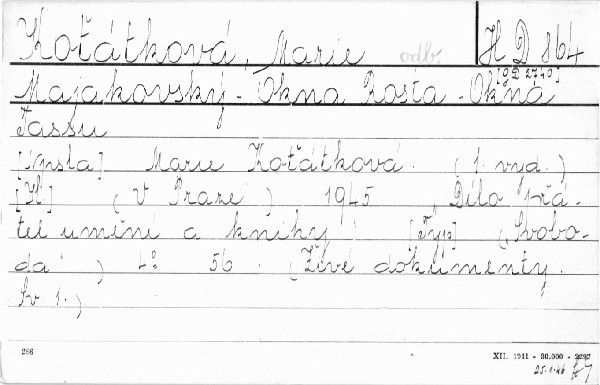 Koťátková, Marie odb. H D 864
Majakovský - Okna Rosta - Okna [9D2740]
Tassu
[Mysla] Marie Koťátková. (1. vyd.)
[K] (V Praze) 1945, Dílo přá-
tel umění a knihy [Typ] (Svobo-
da) 4° 56. (Živé dokumenty.
Sv. 1.)
286 XII. 1941 - 30.000 - 3297
25.1.46